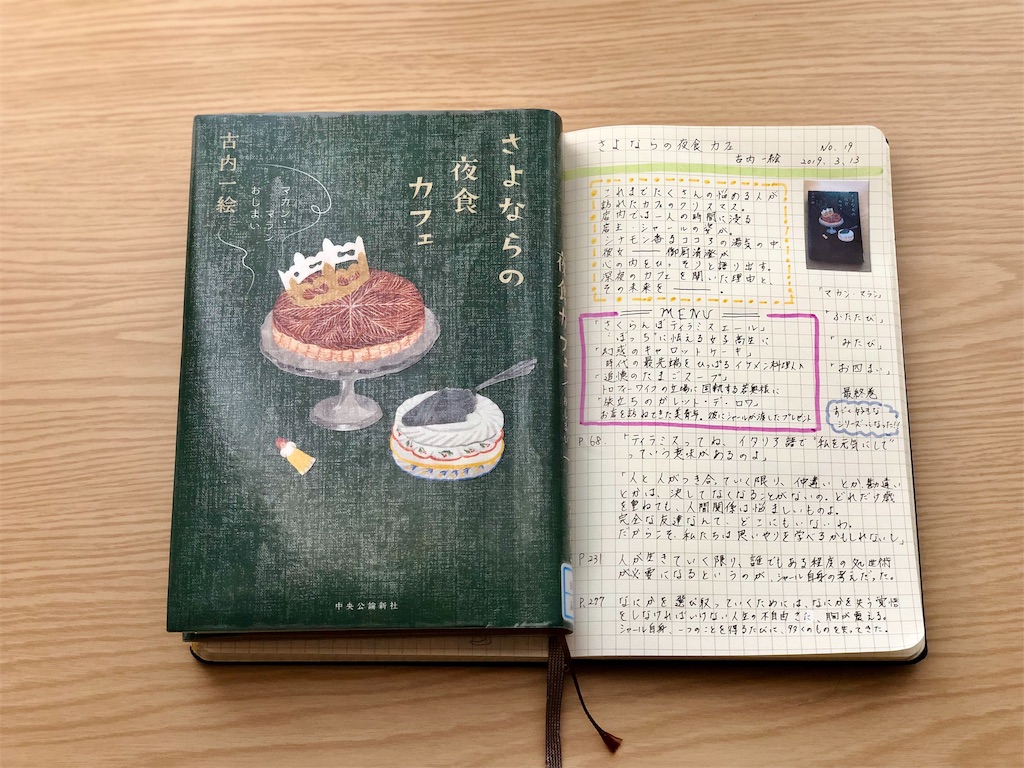 さよならの
夜食
カフェ
マカン・マラン
おしまい
古内一絵
中央公論新社
さよならの夜食カフェ
No. 19
古内一絵
2019. 3. 13
これまでたくさんの悩める人が
訪れたカフェのクリスマス。
店内では一人の時間に浸る
店主・シャールの姿が。
シナモン香るココアの湯気の中、
彼女――御厨清澄が
心の内をひっそりと語り出す。
深夜のカフェを開いた理由と、
その未来を――。
「マカン・マラン」
「ふたたび」
「みたび」
「お四まい」
最終巻
すごく好きな
シリーズになった!!
MENU
「さくらんぼティラミスエール」
"ぼっち"に怯える女子高生に
「幻惑のキャロットケーキ」
時代の最先端をひっぱるイケメン料理人に
「追憶のたまごスープ」
トロフィーワイフの立場に困惑する若奥様に
「旅立ちのガレット・デ・ロワ」
お店を訪ねてきた美青年。彼にシャールが渡したプレゼント
P.68.「ティラミスってね、イタリア語で"私を元気にして"
っていう意味があるのよ」
「人と人がつき合っていく限り、仲違いとか勘違い
とかは、決してなくなることがないの。どれだけ歳
を重ねても、人間関係は悩ましいものよ。
完全な友達なんて、どこにもいないわ。
だからこそ、私たちは思いやりを学べるかもしれないし」
P.231 人が生きていく限り、誰でもある程度の処世術
が必要になるというのが、シャール自身の考えだった。
P.277 なにかを選び取っていくためには、なにかを失う覚悟
をしなければいけない人生の不自由さに、胸が震える。
シャール自身、一つのことを得るたびに、多くのものを失ってきた。